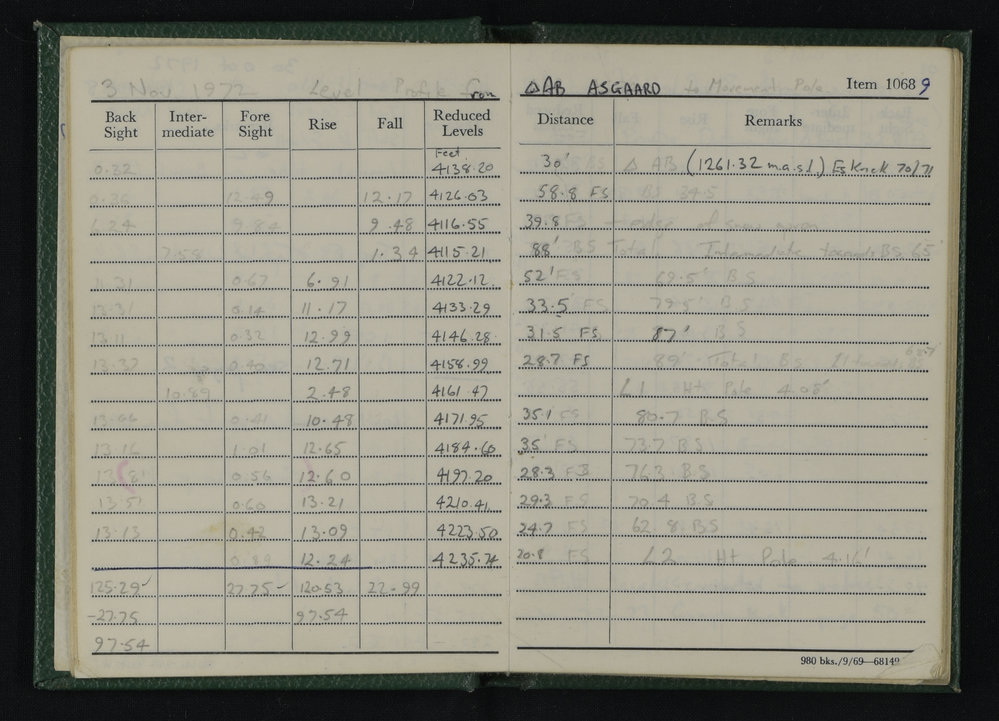 3 Nov 1972 Level Profile from △AB ASGAARD to Movement Pole Item 1068 9
Back Sight Inter-mediate Fore Sight Rise Fall Reduced Levels Distance Remarks
Feet
0.32 4138.20 30' △ AB (1261.32 m.a.s.l.) 70/71
12.49 12.17 4126.03 58.8 FS BS 34.5
6.24 9.84 9.48 4116.55 39.8 FS edge of snow
7.58 1.34 4115.21 88' BS Total Intermediate towards BS 65'
11.31 0.67 6.91 4122.12 52' FS 69.5' BS
0.14 11.17 4133.29 33.5 FS 79.5' BS
13.11 0.32 12.99 4146.28 31.5 FS 87' BS
13.37 0.40 12.71 4158.99 28.7 FS 89' Total BS
10.89 2.48 4161.47 L1 Ht Pole 4.08'
13.66 0.41 10.48 4171.95 35.1 FS 80.7 BS
13.16 1.01 12.65 4184.60 35' FS 73.7 BS
13.81 0.56 12.60 4197.20 28.3 FS 76.3 BS
13.51 0.60 13.21 4210.41 29.3 FS 70.4 BS
13.13 0.42 13.09 4223.50 24.7 FS 62.8 BS
0.89 12.24 4235.74 20.8 FS L2 Ht Pole 4.16'
125.29 27.75 120.53 22.99
-27.75 97.54
97.54
980 bks./9/69—68149